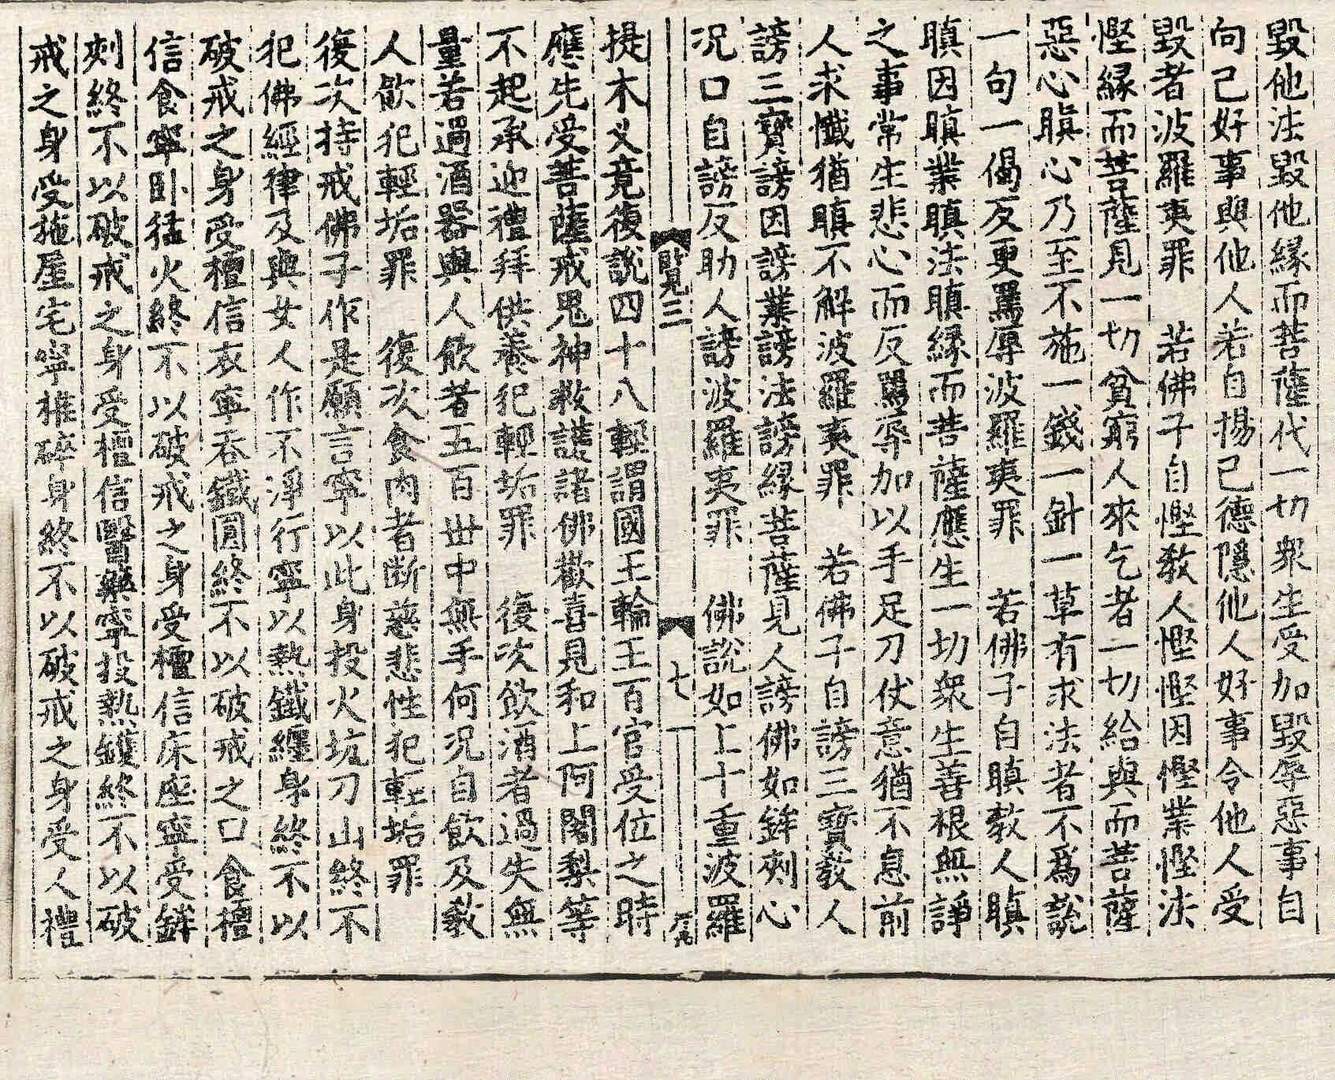 毀他法毀他緣而菩薩代一切衆生受加毀辱惡事自
向己好事與他人若自揚己德隱他人好事令他人受
毀者波羅夷罪　若佛子自慳敎人慳慳因慳業慳法
慳縁而菩薩見一切貧窮人來乞者一切給與而菩薩
惡心瞋心乃至不施一錢一針一草有求法者不爲說
一句一偈反更罵辱波羅夷罪　若佛子自瞋敎人瞋
瞋因瞋業瞋法瞋縁而菩薩應生一切衆生善根無諍
之事常生悲心而反罵辱加以手足刀仗意猶不息前
人求懺猶瞋不解波羅夷罪　若佛子自謗三寶敎人
謗三寶謗因謗業謗法謗縁菩薩見人謗佛如鉾刾心
况口自謗反助人謗波羅夷罪　佛說如上十重波羅
三　七
提木义竟復說四十八輕謂國王輪王百官受位之時
應先受菩薩戒鬼神救護諸佛歡喜見和上阿闍梨等
不起承迎禮拜供養犯輕垢罪　復次飮酒者過失無
量若過酒器與人飮者五百世中無手何況自飮及敎
人飮犯輕垢罪　復次食肉者断慈悲性犯輕垢罪
復次持戒佛子作是願言寧以此身投火坑刀山終不
犯佛經律及與女人作不淨行寧以熱鐵纒身終不以
破戒之身受檀信衣寧呑鐵圓終不以破戒之口食檀
信食寧卧猛火終不以破戒之身受檀信床座寧受鉾
刾終不以破戒之身受檀信醫藥寧投熱鑊終不以破
戒之身受施屋宅寧椎碎身終不以破戒之身受人禮